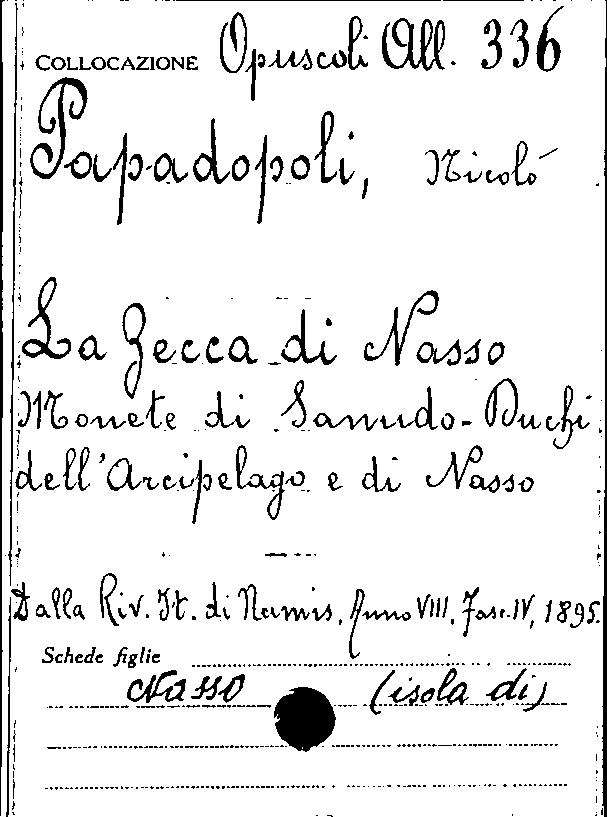 COLLOCAZIONE Opuscoli All. 336
Papadopoli, Nicolò
La Zecca di Nasso
Monete di Sanudo-Duchi
dell'Arcipelago e di Nasso
Dalla Riv. It. di Numis. Anno VIII, Fasc. IV, 1895.
Schede figlie
Nasso (isola di)